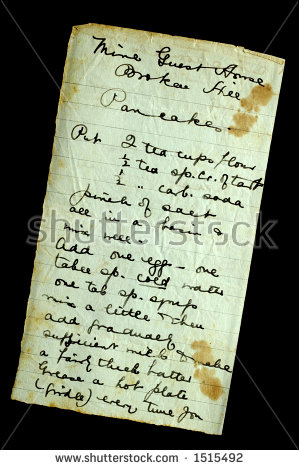 Mine Guest House
Broken Hill
Pancakes.
Put 2 tea cups flour
½ tea sp. Cr. of tart
½ " carb. soda
pinch of salt
all in a basin &
mix well
Add one egg - one
table sp. cold water
one tea sp. syrup
mix a little & then
add gradually
sufficient milk to make
a fairly thick batter
Grease a hot plate
(girdle) every time you
shutterstock
www.shutterstock.com · 1515492